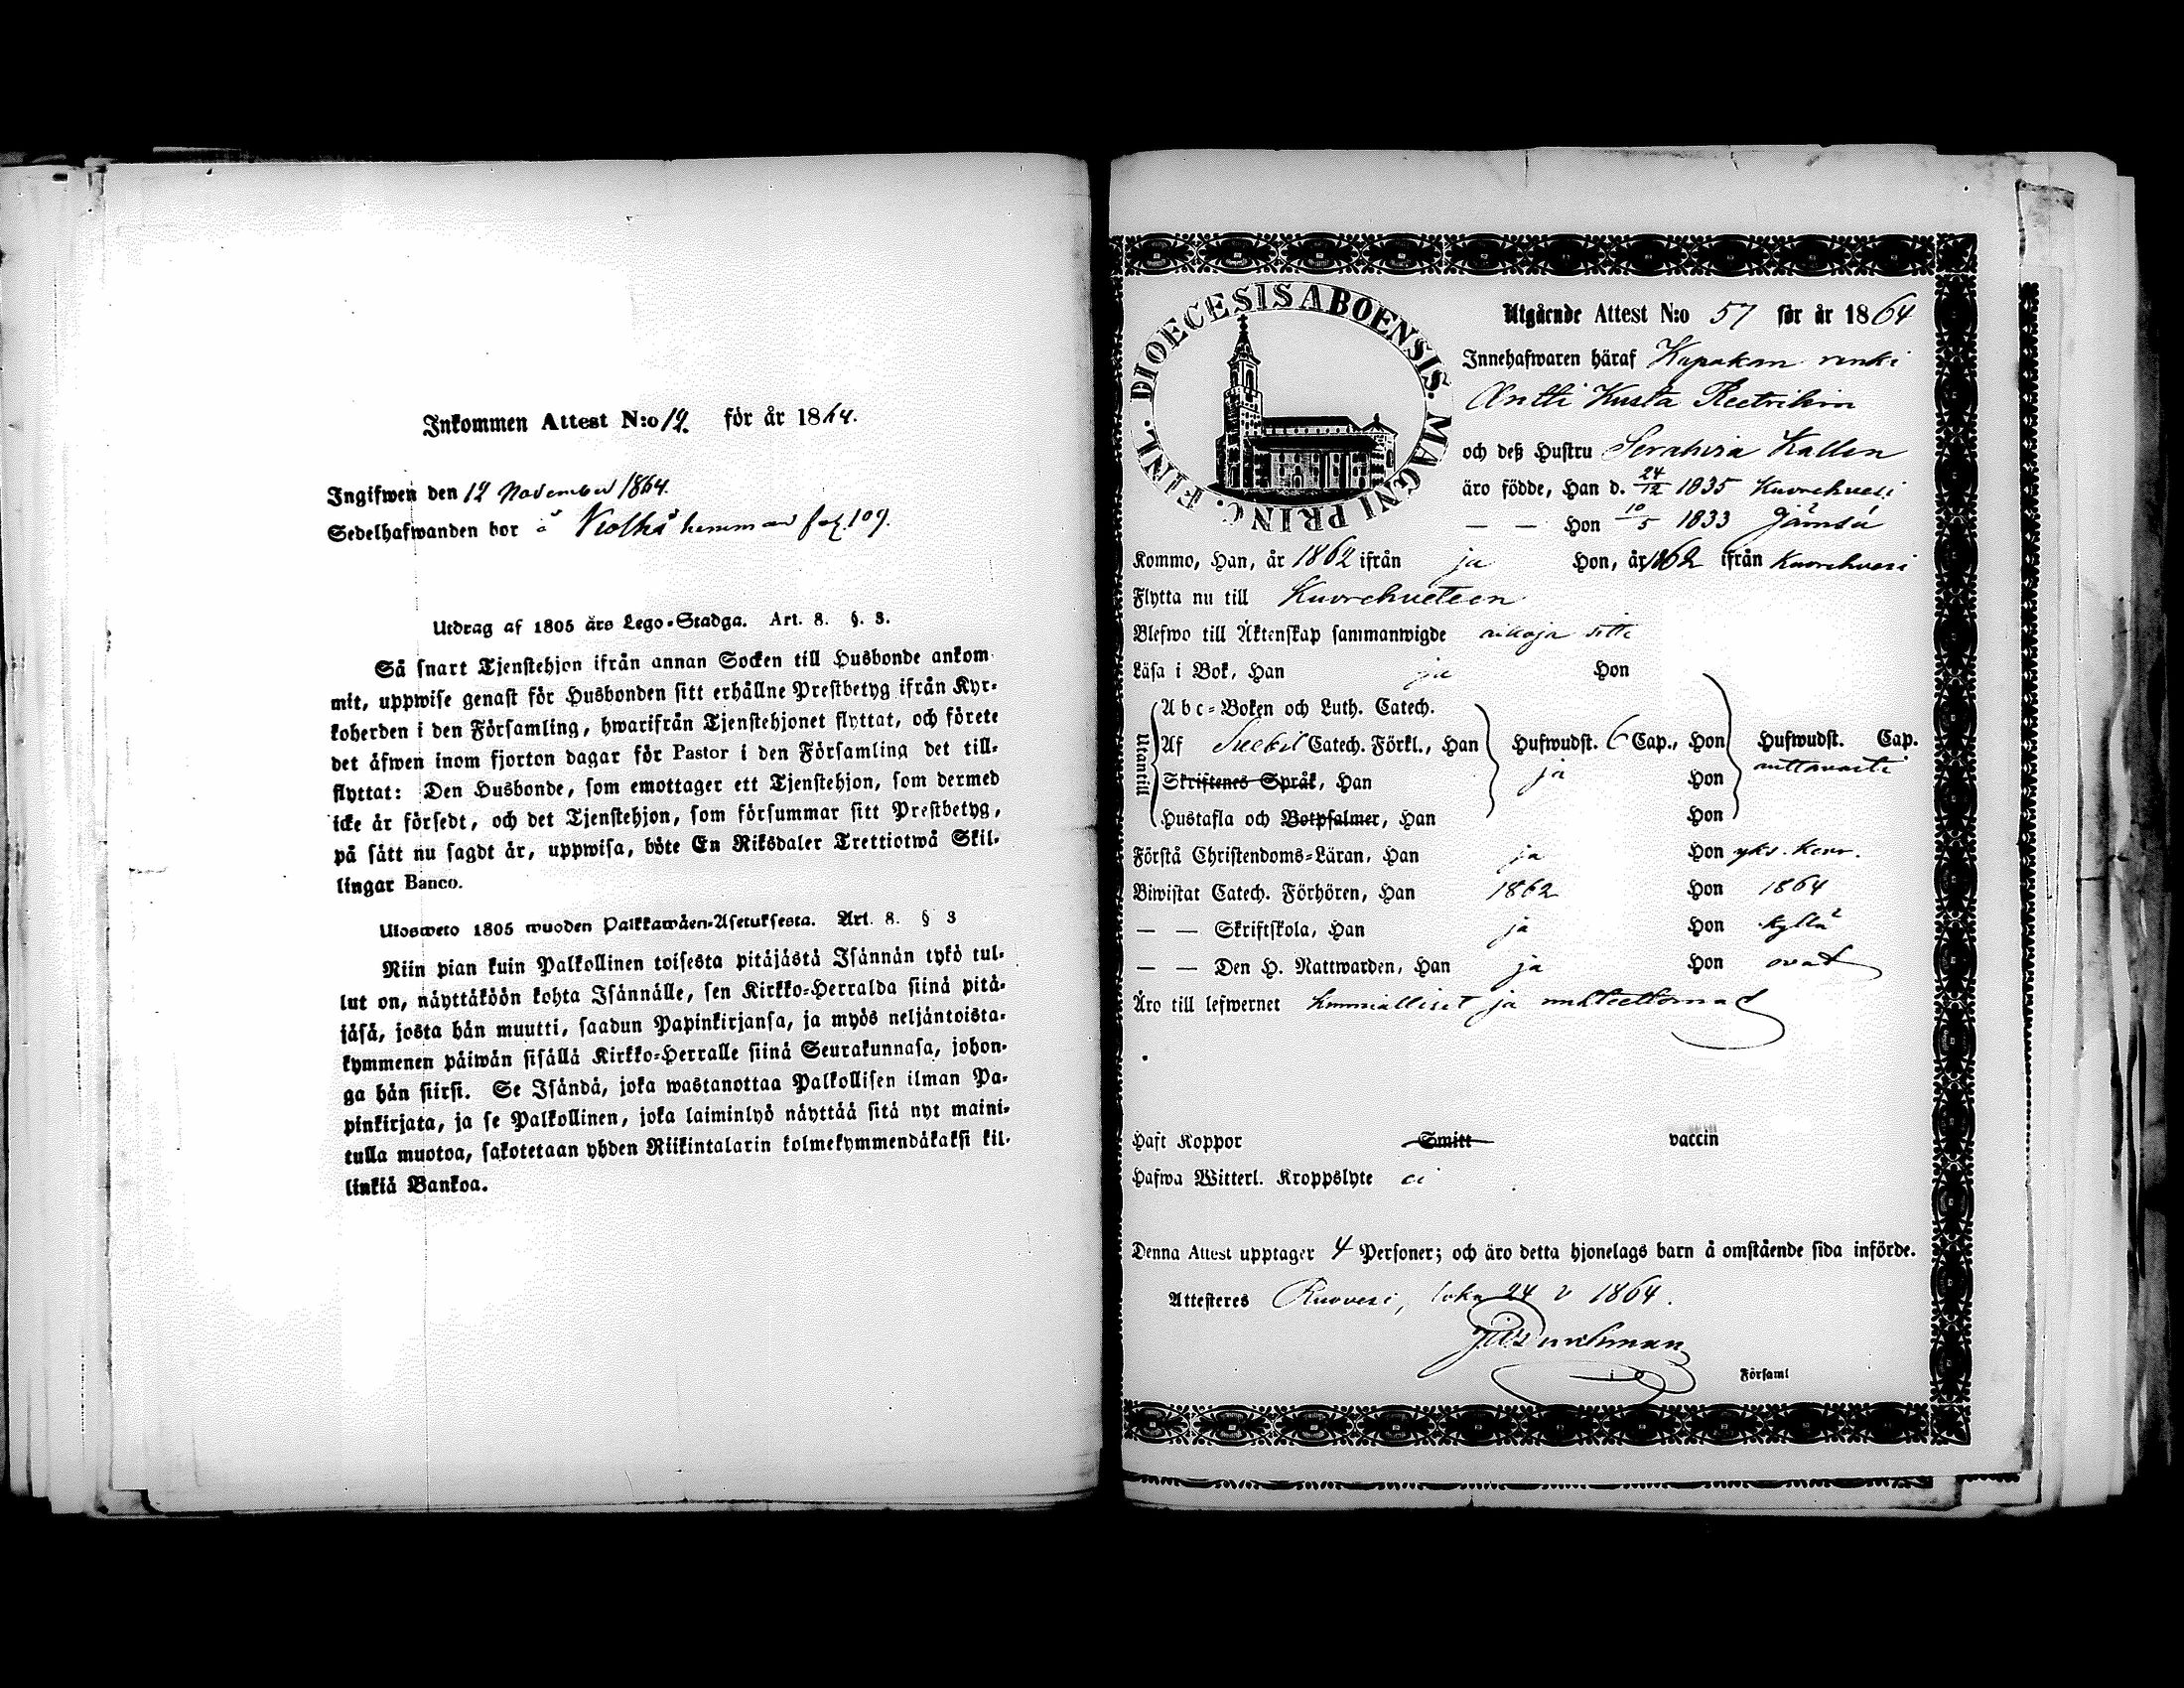 Inkommen Attest N:o 12. för år 1864.
Ingifwen den 12 November 1864.
Sedelhafwanden bor å hemman fol. 109.
Utdrag af 1805 års Lego-Stadga. Art. 8. §. 3.
Så snart Tjenstehjon ifrån annan Socken till Husbonde ankom-
mit, uppwise genast för Husbonden sitt erhållne Prestbetyg ifrån Kyr-
koherden i den Församling, hwarifrån Tjenstehjonet flyttat, och förete
det äfwen inom fjorton dagar för Pastor i den Församling det till-
flyttat: Den Husbonde, som emottager ett Tjenstehjon, som dermed
icke är försedt, och det Tjenstehjon, som försummar sitt Prestbetyg,
på sätt nu sagdt är, uppwisa, böte En Riksdaler Trettiotwå Skil-
lingar Banco.
Ulosweto 1805 wuoden Palkkawäen-Asetuksesta. Art. 8. § 3
Niin pian kuin Palkollinen toisesta pitäjästä Isännän tykö tul-
lut on, näyttäköön kohta Isännälle, sen Kirkko-Herralda siinä pitä-
jäsä, josta hän muutti, saadun Papinkirjansa, ja myös neljäntoista-
kymmenen päiwän sisällä Kirkko-Herralle siinä Seurakunnasa, johon-
ga hän siirsi. Se Isändä, joka wastanottaa Palkollisen ilman Pa-
pinkirjata, ja se Palkollinen, joka laiminlyö näyttää sitä nyt maini-
tulla muotoa, sakotetaan yhden Riikintalarin kolmekymmendäkaksi kil-
linkiä Bankoa.
DIOECESIS ABOENSIS. MAGNI PRINC. FINL.
Utgående Attest N:o 57 för år 1864
Innehafwaren häraf renki
Antti Kusta
och deß Hustru Kallen
äro födde, Han d. 24/12 1835 Kuorehvesi
— — Hon 10/5 1833 Jämsä
Kommo, Han, år 1862 ifrån ja Hon, år 1862 ifrån Kuorehvesi
Flytta nu till Kuorehveteen
Blefwo till Äktenskap sammanwigde
Läsa i Bok, Han ja Hon
Utantill
Abc-Boken och Luth. Catech.
Af Catech. Förkl., Han Hufwudst. 6 Cap., Hon Hufwudst. Cap.
Skriftenes Språk, Han ja Hon auttavasti
Hustafla och Botpsalmer, Han Hon
Förstå Christendoms-Läran, Han ja Hon yks. kerr.
Biwistat Catech. Förhören, Han 1862 Hon 1864
— — Skriftskola, Han ja Hon kyllä
— — Den H. Nattwarden, Han ja Hon ovat
Äro till lefwernet kunnialliset ja nuhteettomat
Haft Koppor Smitt vaccin
Hafwa Witterl. Kroppslyte ei
Denna Attest upptager 4 Personer; och äro detta hjonelags barn å omstående sida införde.
Attesteres Ruovesi, loka 24 1864.
i Församl